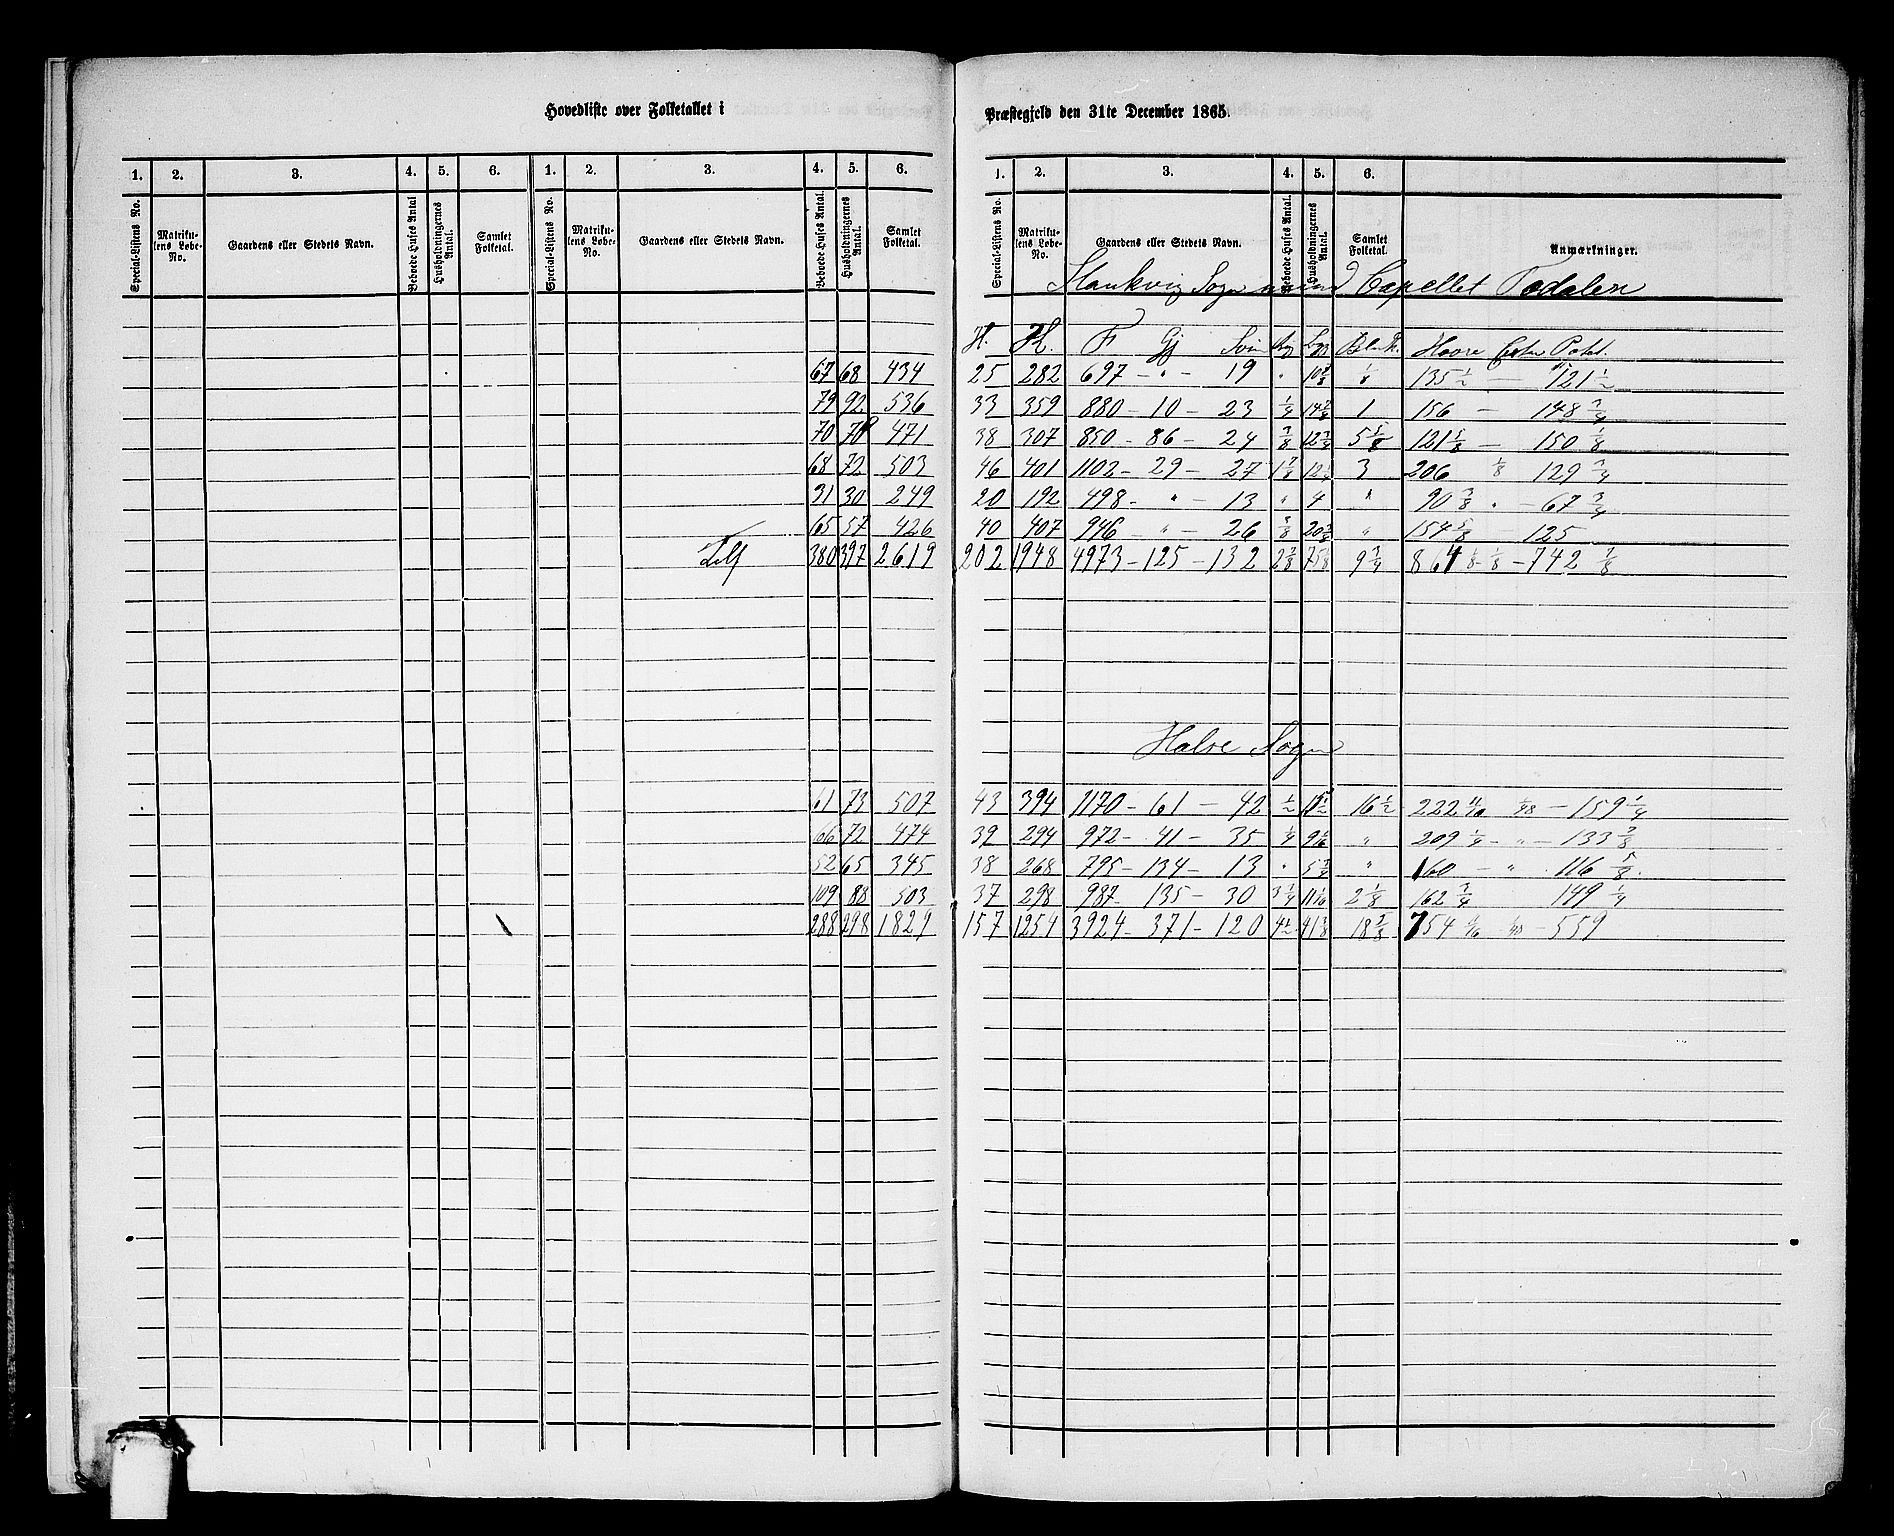 Hovedliste over Folketallet i Præstegjeld den 31te December 1865.
1. 2. 3. 4. 5. 6. 1. 2. 3. 4. 5. 6. 1. 2. 3. 4. 5. 6.
Special-Listens No. Matrikulens Løbe-No. Gaardens eller Stedets Navn. Beboede Huses Antal Husholdningernes Antal. Samlet Folketal. Special-Listens No. Matrikulens Løbe-No. Gaardens eller Stedets Navn. Beboede Huses Antal. Husholdningernes Antal. Samlet Folketal. Special-Listens No. Matrikulens Løbe-No. Gaardens eller Stedets Navn. Beboede Huses Antal. Husholdningernes Antal. Samlet Folketal. Anmærkninger.
Stankvig Sogn med Capellet Todalen
H. H. F Gj Svin Byg Blk. Havre Erter Potet.
67 68 434 25 282 697 - " - 19 " 10 1/8 135 1/2 - 121 1/2
79 92 536 33 359 880 - 10 - 23 1/4 14 3/4 1 156 - 148 3/4
70 78 471 38 307 850 - 86 - 24 3/8 12 3/4 5 5/8 121 5/8 - 150 1/8
68 72 503 46 401 1102 - 29 - 27 1 3/8 12 1/4 3 206 1/8 129 3/4
31 30 249 20 192 498 - " - 13 " 4 " 90 3/8 " - 67 3/4
65 57 426 40 407 946 - " - 26 5/8 20 3/8 " 154 5/8 - 125
380 397 2619 202 1948 4973 - 125 - 132 2 3/8 75 1/8 9 3/4 864 1/8 - 1/8 - 742 7/8
Halse Sogn
61 73 507 43 394 1170 - 61 - 42 1/2 15 1/2 16 1/2 222 1/48 - 159 1/4
66 72 474 39 294 972 - 41 - 35 1/4 9 1/16 " 209 1/4 - " - 133 3/8
52 65 345 38 268 795 - 134 - 13 " 5 3/4 " 160 - " 116 5/8
109 88 503 37 298 987 135 - 30 3 3/4 11 1/16 2 1/8 162 3/4 149 1/4
288 298 1829 157 1254 3924 - 371 - 120 4 1/2 41 3/8 18 5/8 754 1/16 1/48 - 559